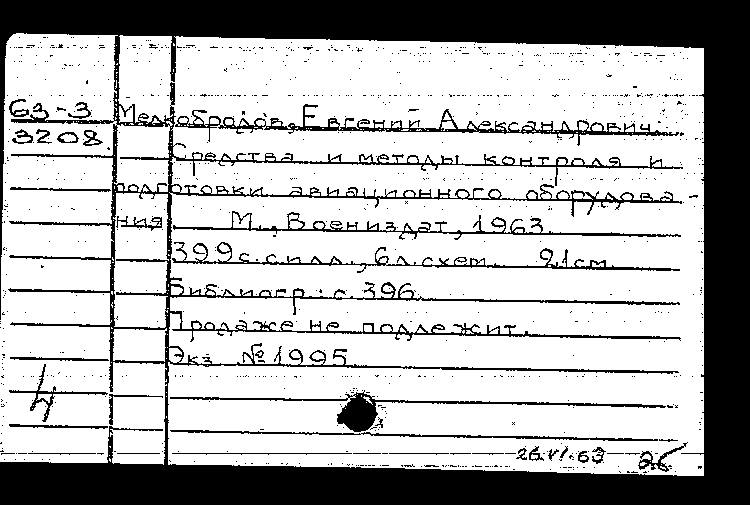 63-3
3208
Мелкобродов, Евгений Александрович.
Средства и методы контроля и
подготовки авиационного оборудова-
ния. М., Воениздат, 1963.
399 с. с илл., 6 л. схем. 21 см.
Библиогр.: с. 396.
Продаже не подлежит.
Экз № 1995
4
26.VI.63